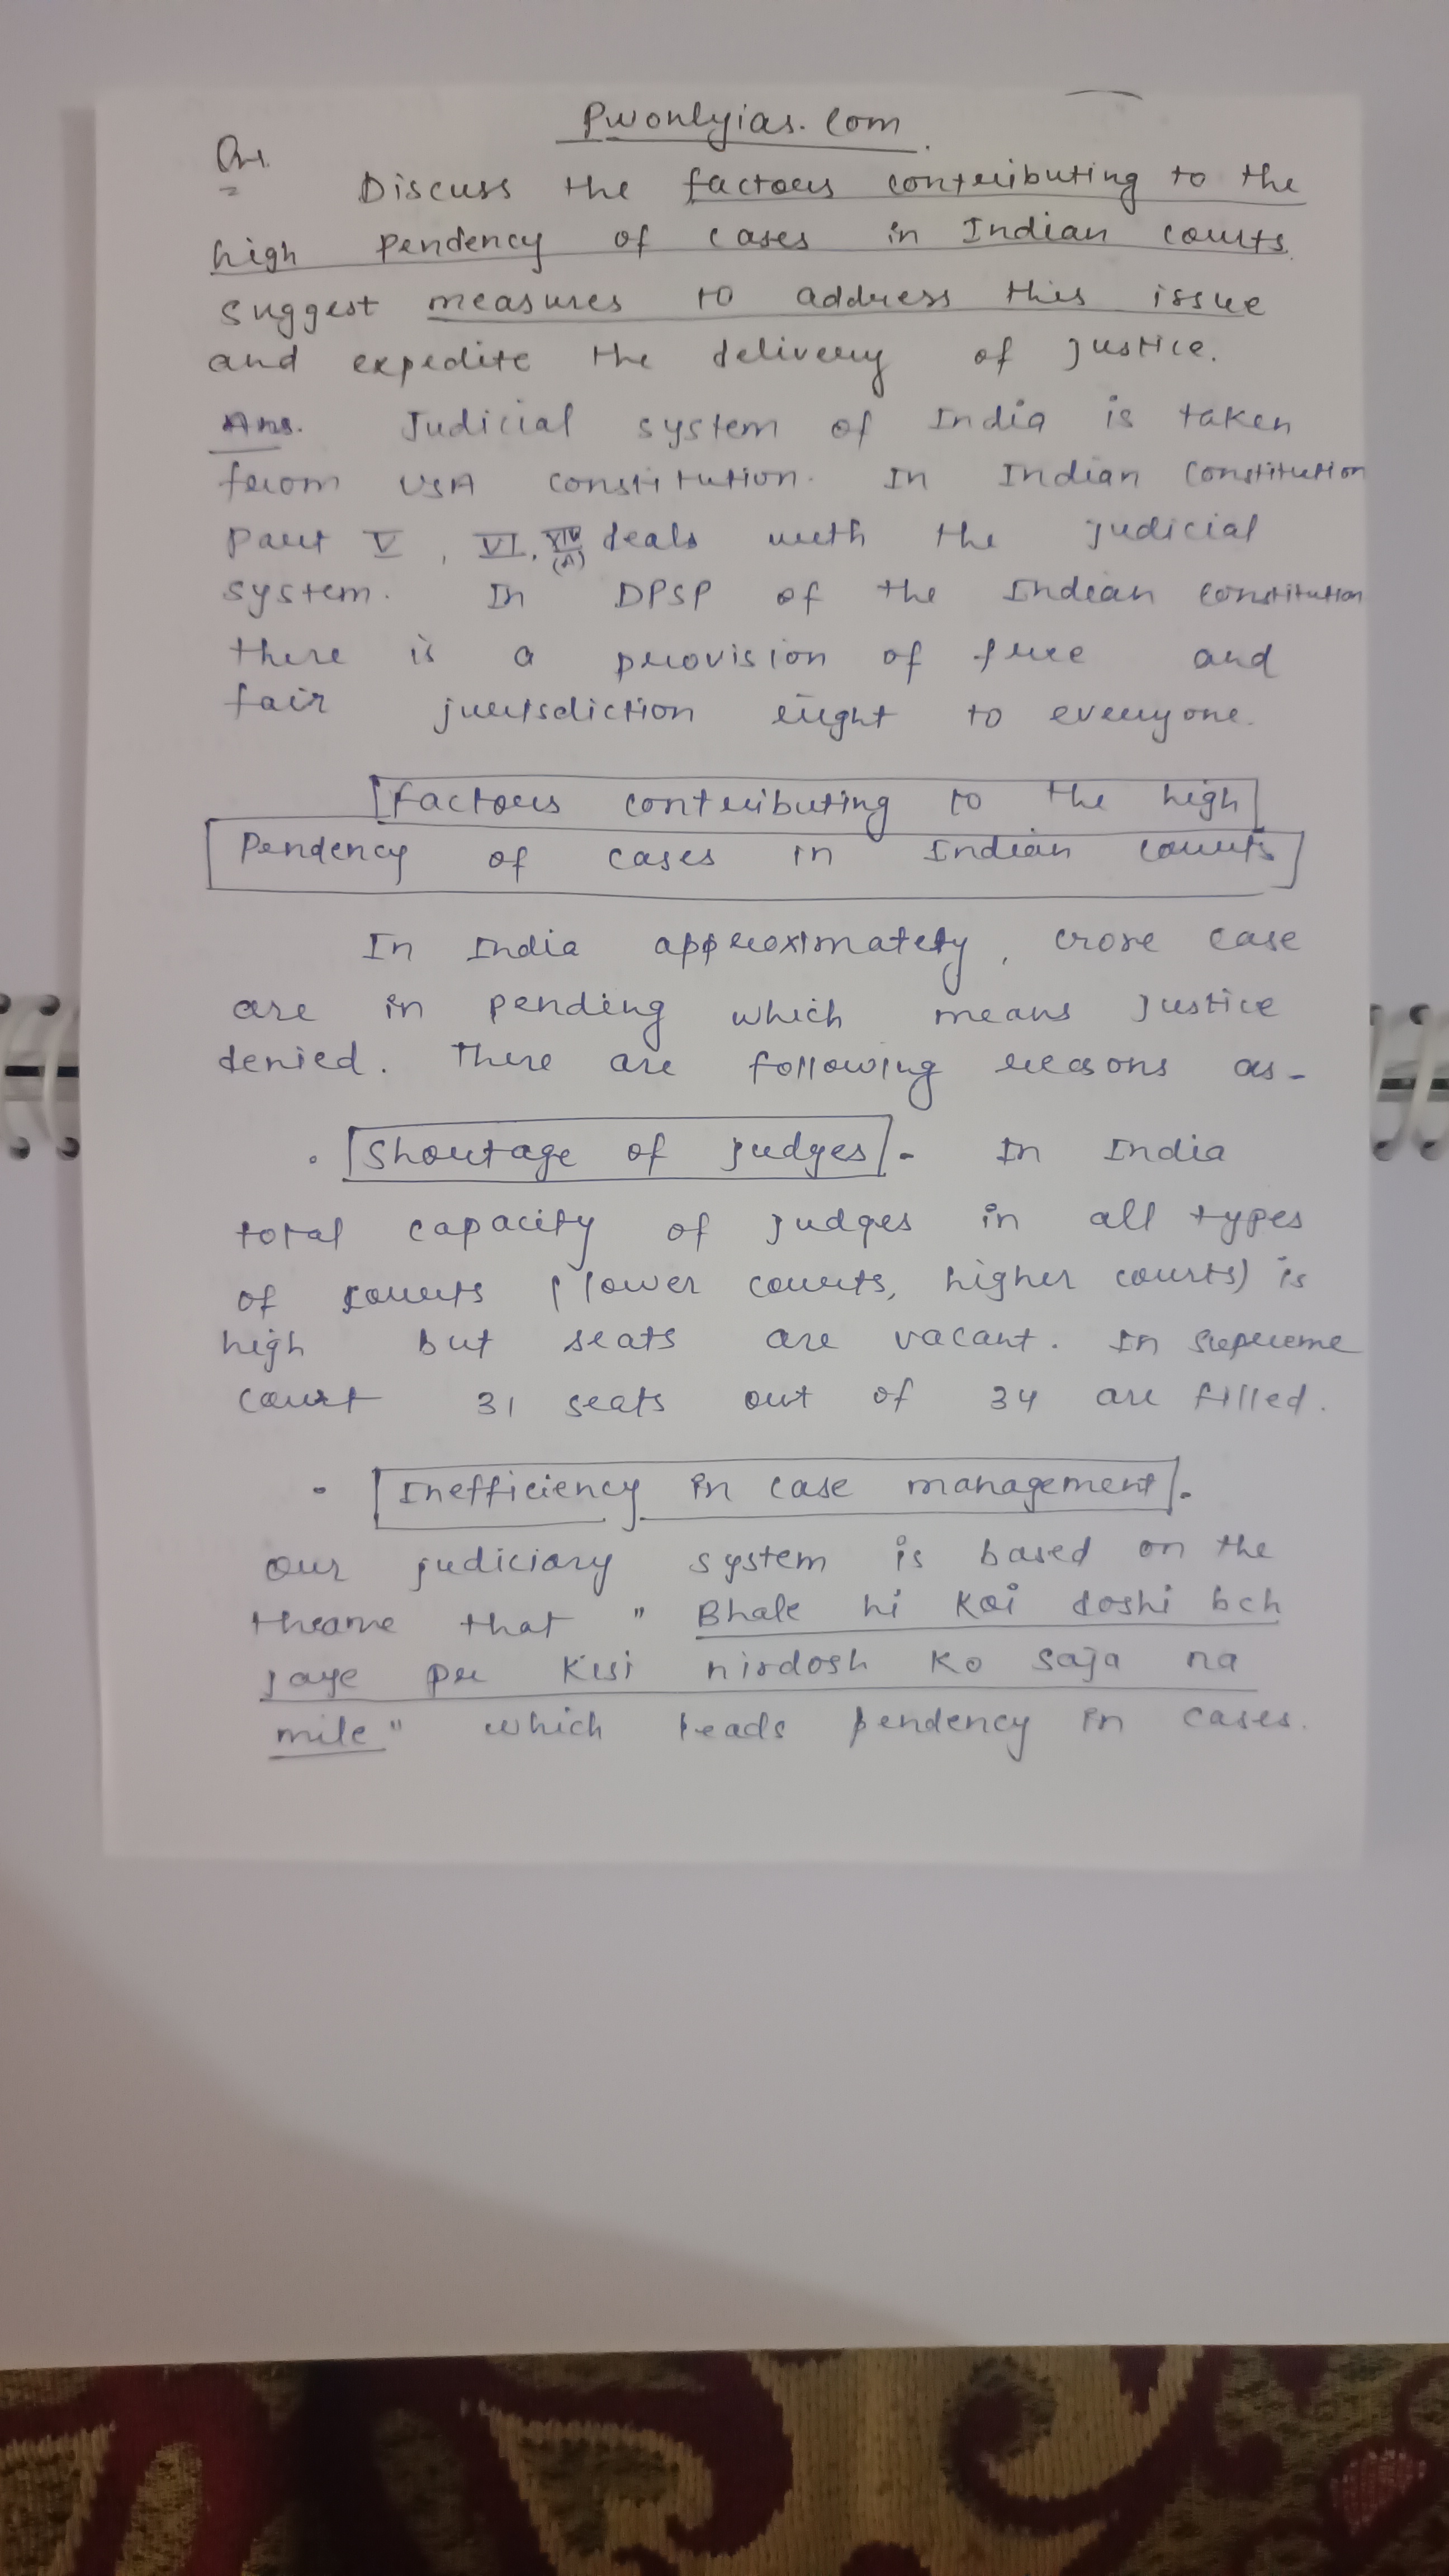 Pwonlyias.com
Qn.
Discuss the factors contributing to the
high pendency of cases in Indian courts.
suggest measures to address this issue
and expedite the delivery of justice.
Ans. Judicial system of India is taken
from USA constitution. In Indian constitution
part V, VI, XIV (A) deals with the judicial
system. In DPSP of the Indian constitution
there is a provision of free and
fair jurisdiction right to everyone.
Factors contributing to the high
Pendency of cases in Indian courts
In India approximately, crore case
are in pending which means justice
denied. There are following reasons as-
. Shortage of judges - In India
total capacity of judges in all types
of courts (lower courts, higher courts) is
high but seats are vacant. In supreme
court 31 seats out of 34 are filled.
- Inefficiency in case management -
our judiciary system is based on the
theame that " Bhale hi koi doshi bch
jaye pr kisi nirdosh ko saja na
mile" which leads pendency in cases.